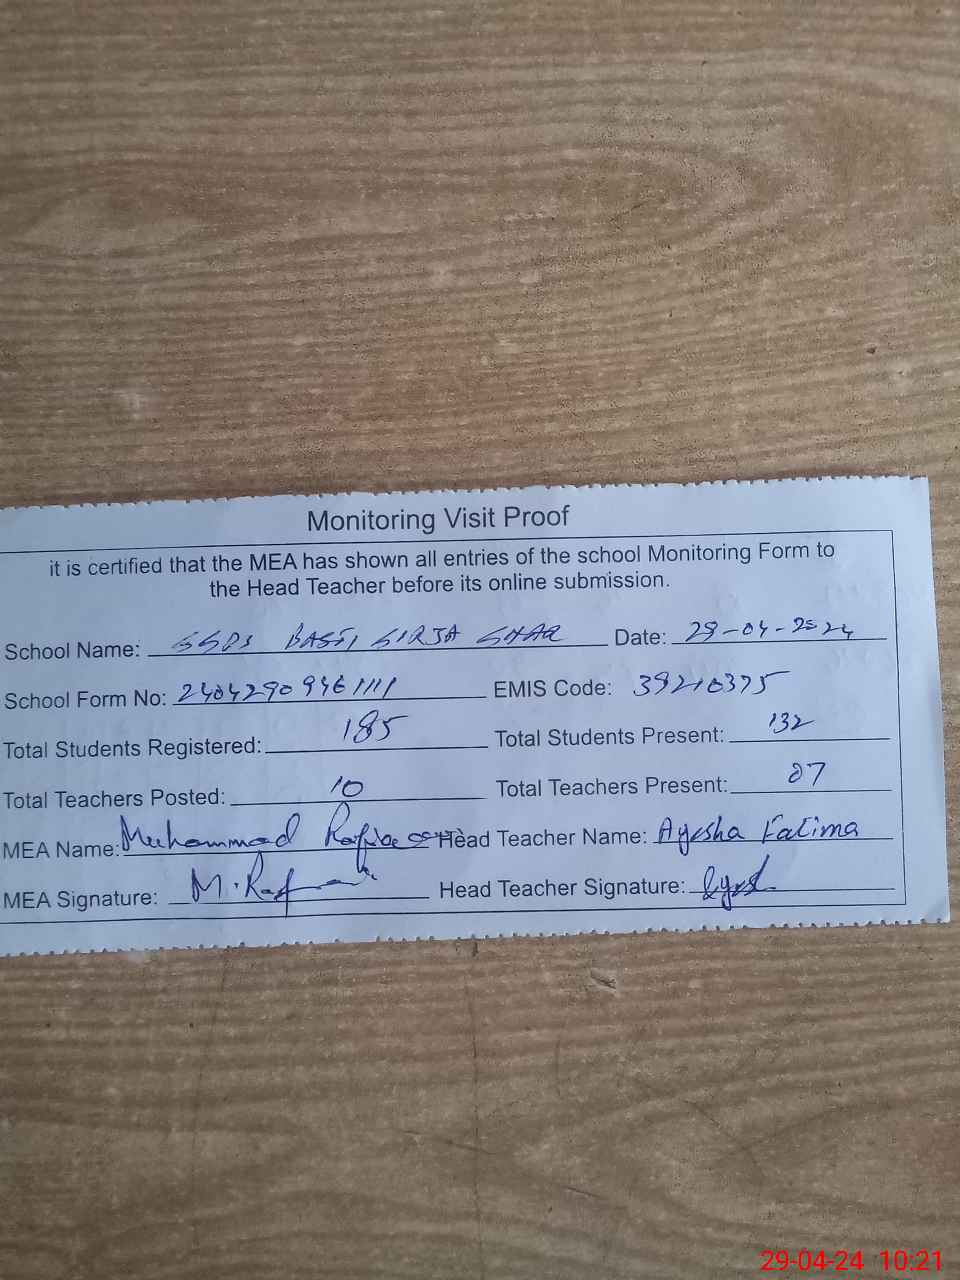 Monitoring Visit Proof
it is certified that the MEA has shown all entries of the school Monitoring Form to
the Head Teacher before its online submission.
School Name: BASTI SHAR Date: 29-04-2024
School Form No: 24042909461111 EMIS Code: 39210375
Total Students Registered: 185 Total Students Present: 132
Total Teachers Posted: 10 Total Teachers Present: 07
MEA Name: Muhammad Head Teacher Name: Ayesha Fatima
MEA Signature: M. Head Teacher Signature:
29-04-24 10:21